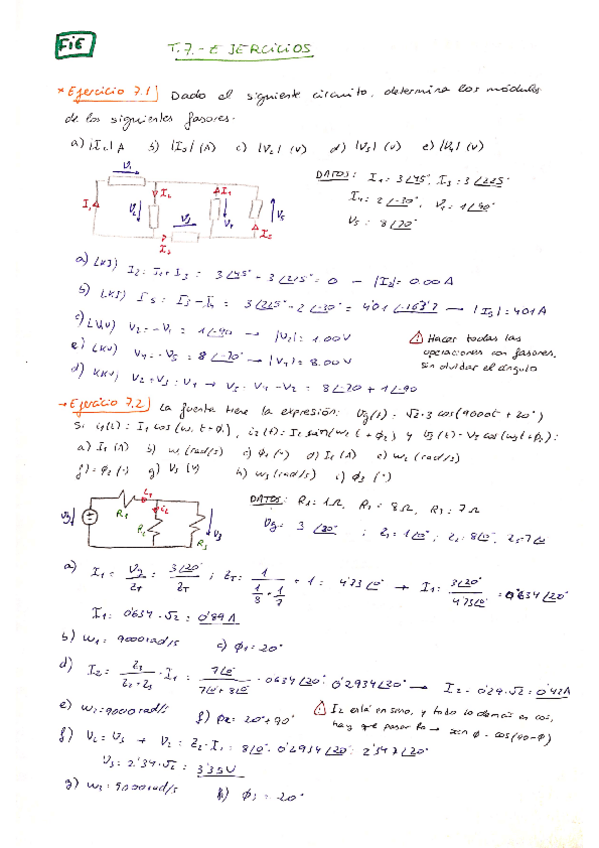 FiE
T.7.- EJERCICIOS
* Ejercicio 7.1) Dado el siguiente circuito, determina los módulos
de los siguientes fasores.
a) |I2| A b) |I3| (A) c) |V2| (V) d) |V3| (V) e) |V4| (V)
DATOS: I1 = 3∠45°, I3 = 3∠215°
I4 = 2∠-30°, V1 = 1∠90°
V5 = 8∠70°
V1
I1
I2
V2
V3
I4
V4
V5
I5
I3
a) LKI) I2 = I1 + I3 = 3∠45° - 3∠215° = 0 → |I2| = 0.00 A
b) LKI) I5 = I3 - I4 = 3∠215° - 2∠-30° = 4'01 → |I5| = 4.01 A
c) LKV) V2 = -V1 = 1∠-90 → |V2| = 1.00 V
e) LKV) V4 = -V5 = 8∠-70° → |V4| = 8.00 V
d) KKV) V2 + V3 = V4 → V3 = V4 - V2 = 8∠-70 + 1∠-90
⚠ Hacer todas las
operaciones con fasores,
sin olvidar el ángulo
→ Ejercicio 7.2) La fuente tiene la expresión: Vg(t) = √2·3 cos(9000t + 20°)
Si i1(t) = I1 cos(w1t + φ1), i2(t) = I2 sin(w2t + φ2) y V3(t) = V3 cos(w3t + φ3):
a) I1 (A) b) w1 (rad/s) c) φ1 (°) d) I2 (A) e) w2 (rad/s)
f) φ2 (°) g) V3 (V) h) w3 (rad/s) i) φ3 (°)
DATOS: R1 = 1Ω, R2 = 8Ω, R3 = 7Ω
Vg = 3∠20° ; Z1 = 1∠0° ; Z2 = 8∠0°, Z3 = 7∠0
Vg
R1
i1
i2
R2
R3
V3
a) I1 = Vg/ZT = 3∠20°/ZT ; ZT = 1/(1/8 + 1/7) + 1 = 4'73∠0° → I1 = 3∠20°/4'73∠0° = 0'634∠20°
I1 = 0'634·√2 = 0'89 A
b) w1 = 9000 rad/s c) φ1 = 20°
d) I2 = Z3/(Z2 + Z3) · I1 = 7∠0°/(7∠0° + 8∠0°) · 0'634∠20° = 0'2934∠20° → I2 = 0'29·√2 = 0'42 A
e) w2 = 9000 rad/s f) φ2 = 20° + 90°
⚠ I2 está en seno, y todo lo demás en cos,
hay que pasarlo → sin φ = cos(90 - φ)
f) V2 = V3 → V2 = Z2·I2 = 8∠0° · 0'2934∠20° = 2'347∠20°
V3 = 2'34·√2 = 3'35 V
g) w3 = 9000 rad/s h) φ3 = 20°